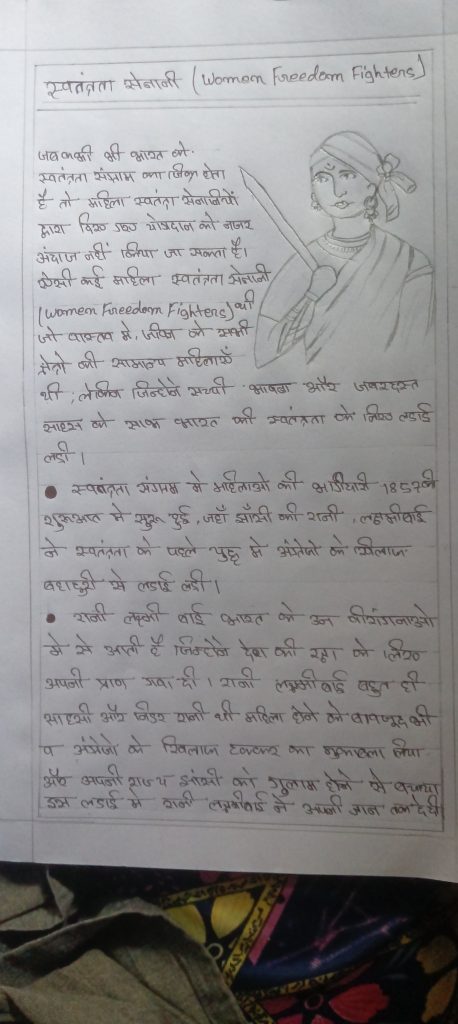 स्वतंत्रता सेनानी (Women Freedom Fighters)
जब कभी भी भारत के
स्वतंत्रता संग्राम का जिक्र होता
है तो महिला स्वतंत्रता सेनानियों
द्वारा किए गए योगदान को नजर
अंदाज नहीं किया जा सकता है।
ऐसी कई महिला स्वतंत्रता सेनानी
(Women Freedom Fighters) थी
जो वास्तव मे, जीवन के सभी
क्षेत्रो की सामान्य महिलाएँ
थी, लेकिन जिन्होने सच्ची भावना और जबरदस्त
साहस के साथ भारत की स्वतंत्रता के लिए लडाई
लडी।
स्वतंत्रता संग्राम मे महिलाओ की भागीदारी 1857 की
शुरूआत मे सुरू हुई, जहाँ झाँसी की रानी, लक्ष्मीबाई
ने स्वतंत्रता के पहले युद्ध मे अंग्रेजो के खिलाफ
बहादुरी से लडाई लडी।
रानी लक्ष्मी बाई भारत के उन वीरांगनाओ
मे से आती है जिन्होने देश की रक्षा के लिए
अपनी प्राण गवा दी। रानी लक्ष्मीबाई बहुत ही
साहसी और निडर रानी थी महिला होने के बावजूद भी
व अंग्रेजो के खिलाफ टक्कर का मुकाबला किया
और अपनी राज्य झांसी को गुलाम होने से बचाया
इस लडाई मे रानी लक्ष्मीबाई ने अपनी जान तक दे दी